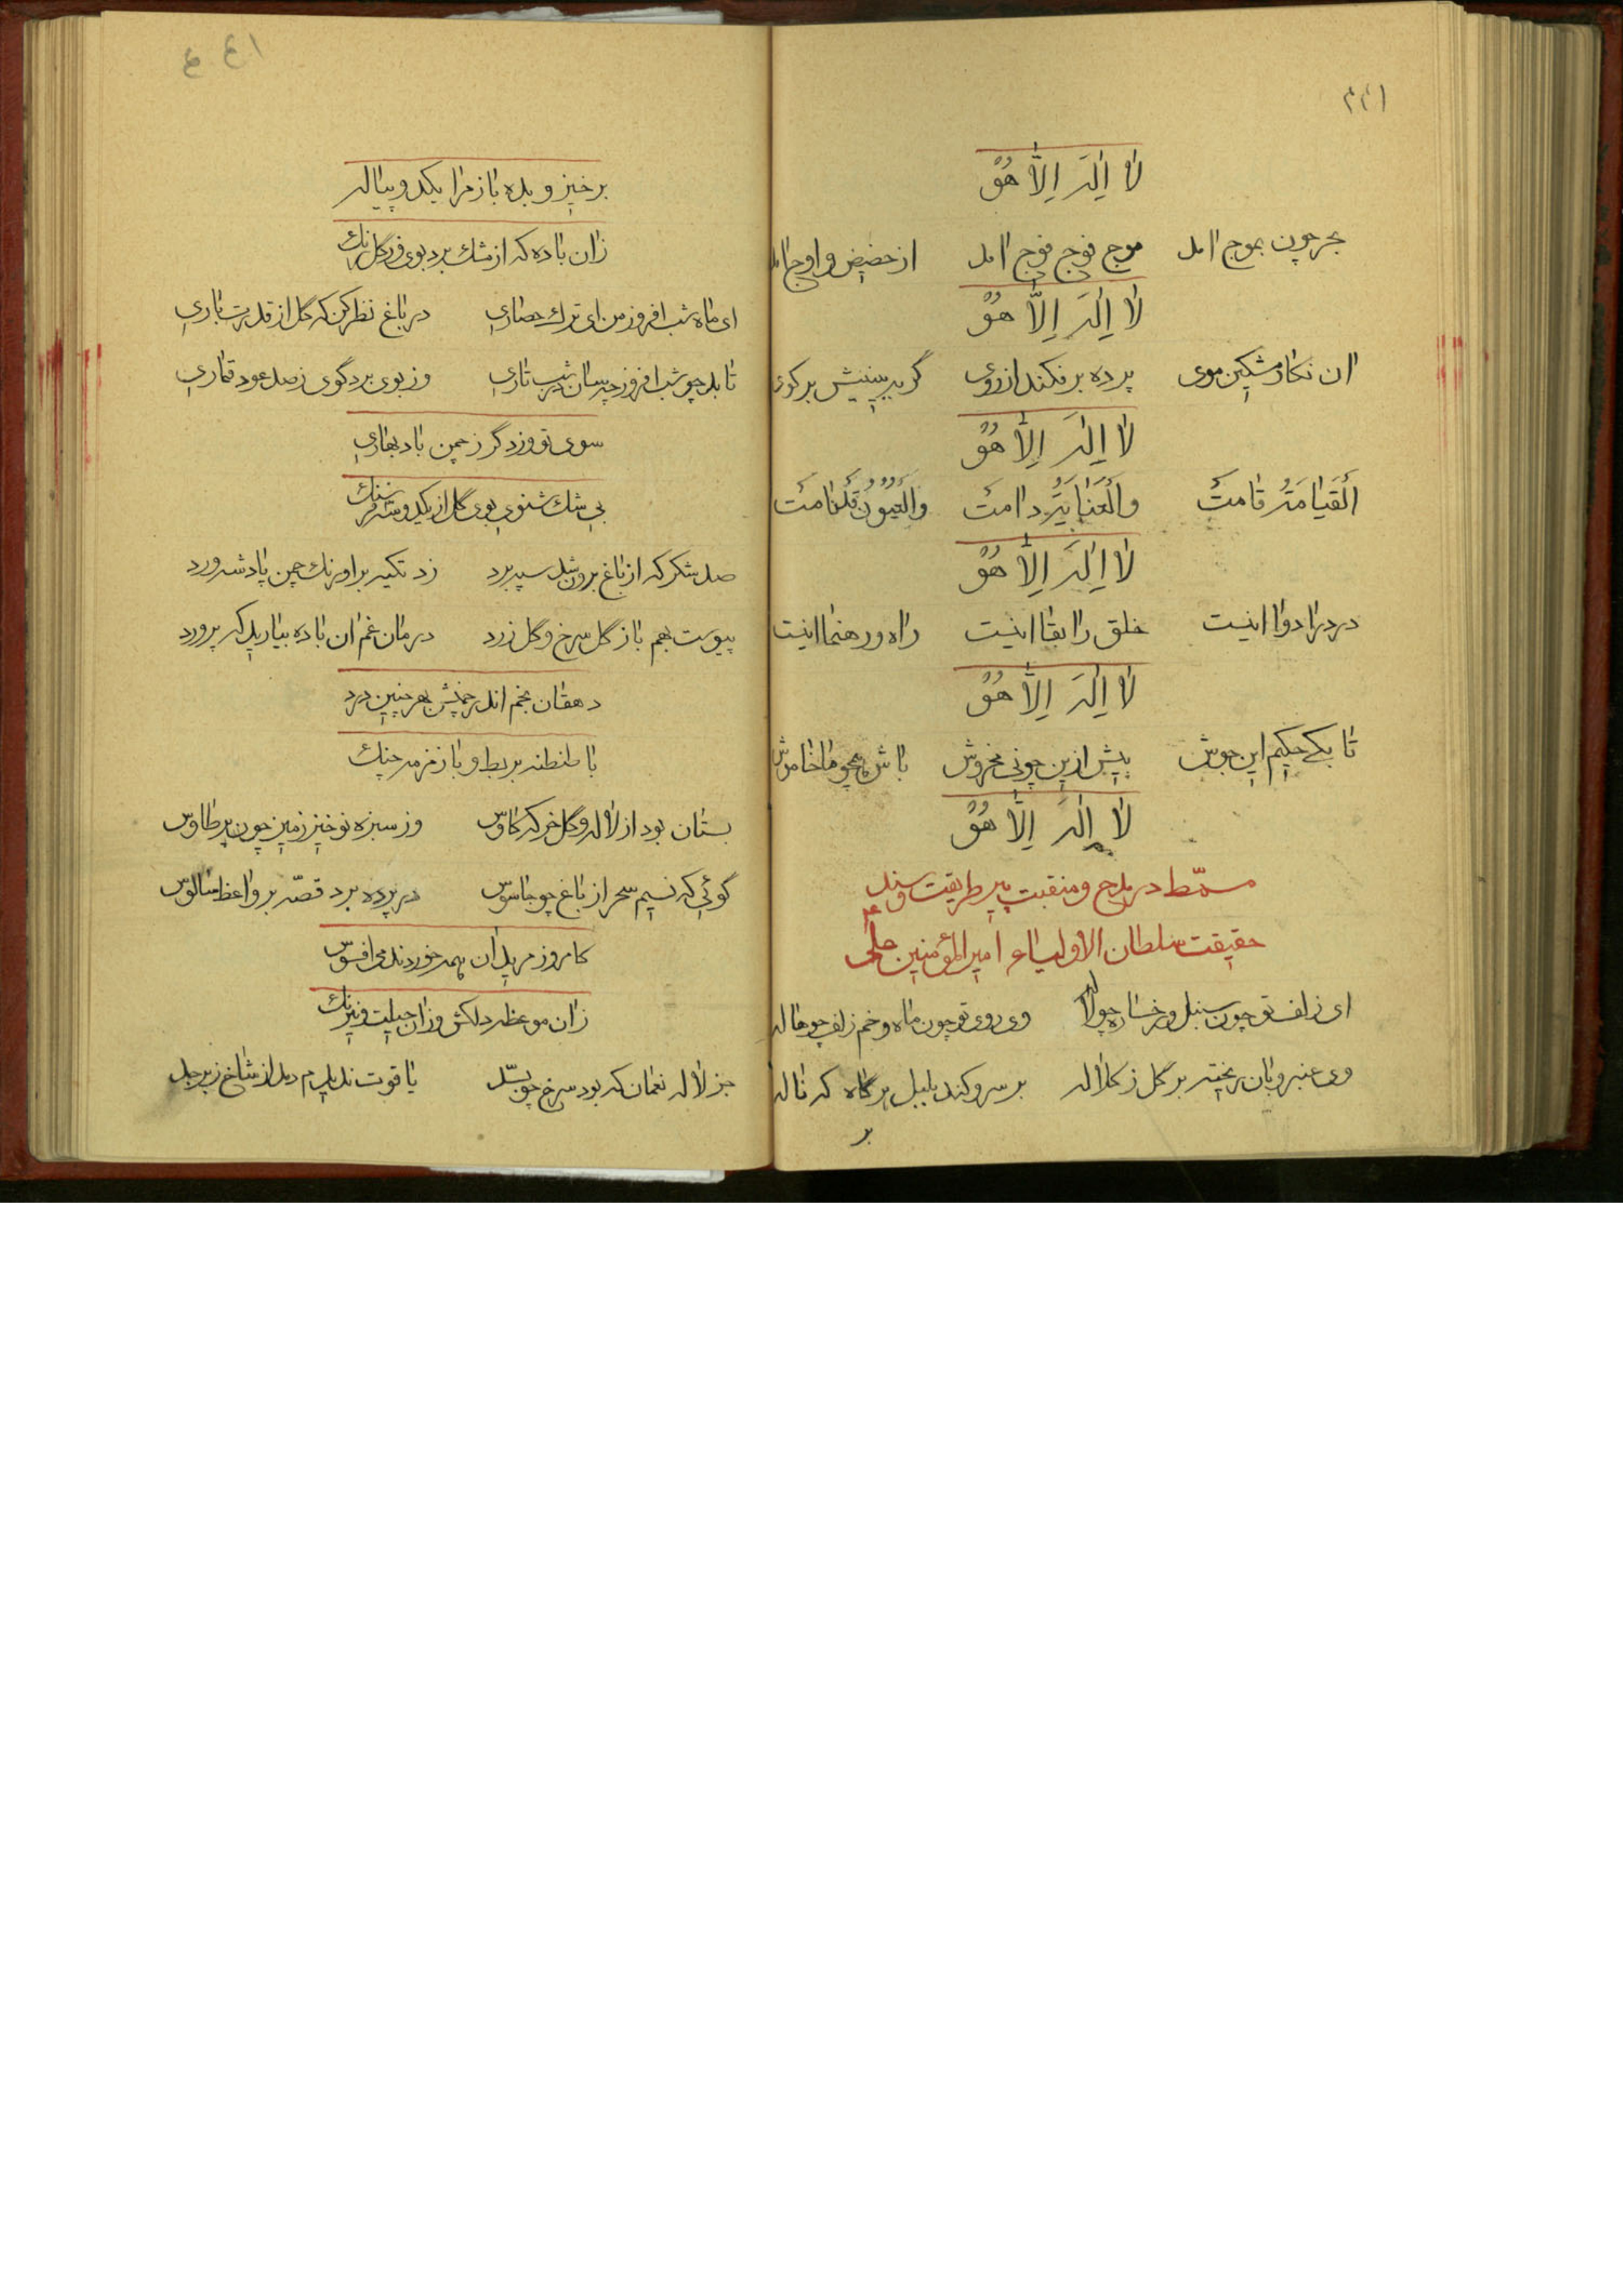 لا اله الا هو
بحر چون بموج امد موج فوج فوج امد از حضیض و اوج امد
لا اله الا هو
ان نکار مشکین موی پرده برفکند از روی گر به بینیش بر کوی
لا اله الا هو
اَلْقَیامَةُ قامَتْ وَالْعَنایَةُ دامَتْ وَالْعُیُونُ قَدْ نامَتْ
لا اله الا هو
درد را دوا اینست خلق را بقا اینست راه و رهنما اینست
لا اله الا هو
تا بکے حکیم این جوش بیش ازین چونی مخروش باش همچو ما خاموش
لا اله الا هو
مسمّط در مدح و منقبت پیر طریقت و سند
حقیقت سلطان الاولیاء امیر المؤمنین علی ع
ای زلف تو چون سنبل و رخساره چو لاله وی روی تو چون ماه و خم زلف چو هاله
وی عنبر و بان ریخته بر گل ز کلاله بر سرو کند بلبل پر گاه که ناله
بر
برخیز و بده باز مرا یکدو پیاله
زان باده که از مشک برد بوی و ز گل رنك
ای ماه شب افروز من ای ترك حصاری در باغ نظر کن که گل از قدرت باری
تابد چو شب افروز چسان در شب تاری وز بوی برد گوی ز صد عود قماری
سوی تو وزد گر ز چمن باد بهاری
بی شك شنوی بوی گل از یکدو سه فرسنك
صد شکر که از باغ برون شد سپه برد زد تکیه بر اورنك چمن پادشه ورد
پیوست بهم باز گل سرخ و گل زرد درمان غم ان باده بیارید که پرورد
دهقان بخم اندر خمش بهر چنین درد
با طنطنه بربط و با زمزمه چنك
بستان بود از لاله و گل خرکه کاوس وز سبزه نوخیز زمین چون پر طاوس
گوئی که نسیم سحر از باغ چو جاسوس در پرده برد قصّه بر واعظ سالوس
کامروز مریدان همه خوردند می افسوس
زان موعظه دلکش و زان حیلت و نیرنك
جز لاله نعمان که بود سرخ چو بسّد یاقوت ندیدم دمد از شاخ زبرجد